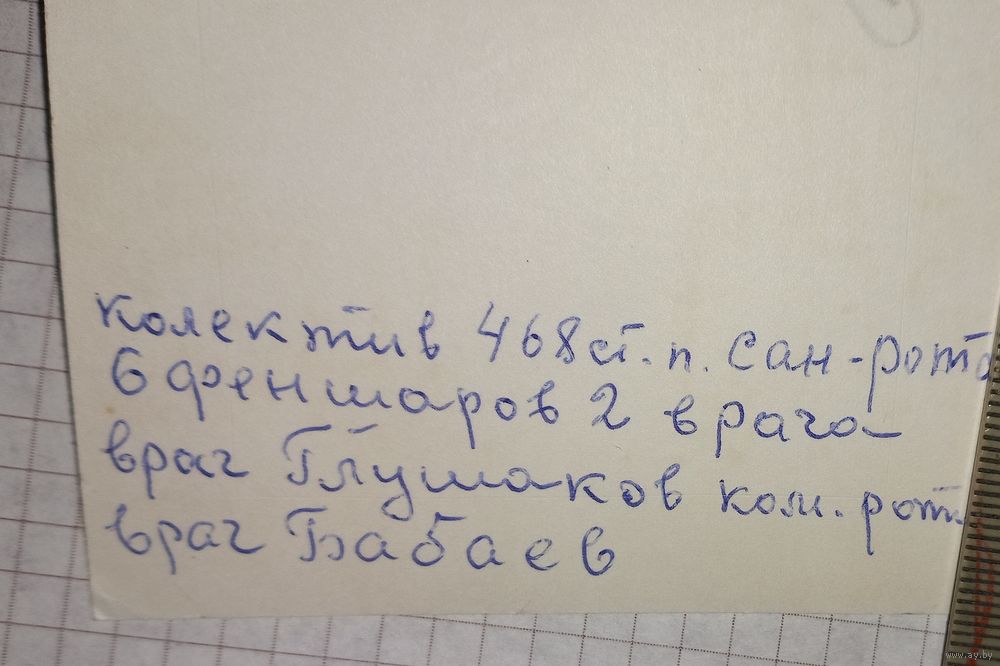 колектив 468 ст. п. Сан-рота
6 феншаров 2 врача
врач Глушаков ком. рот.
врач Бабаев
www.ay.by